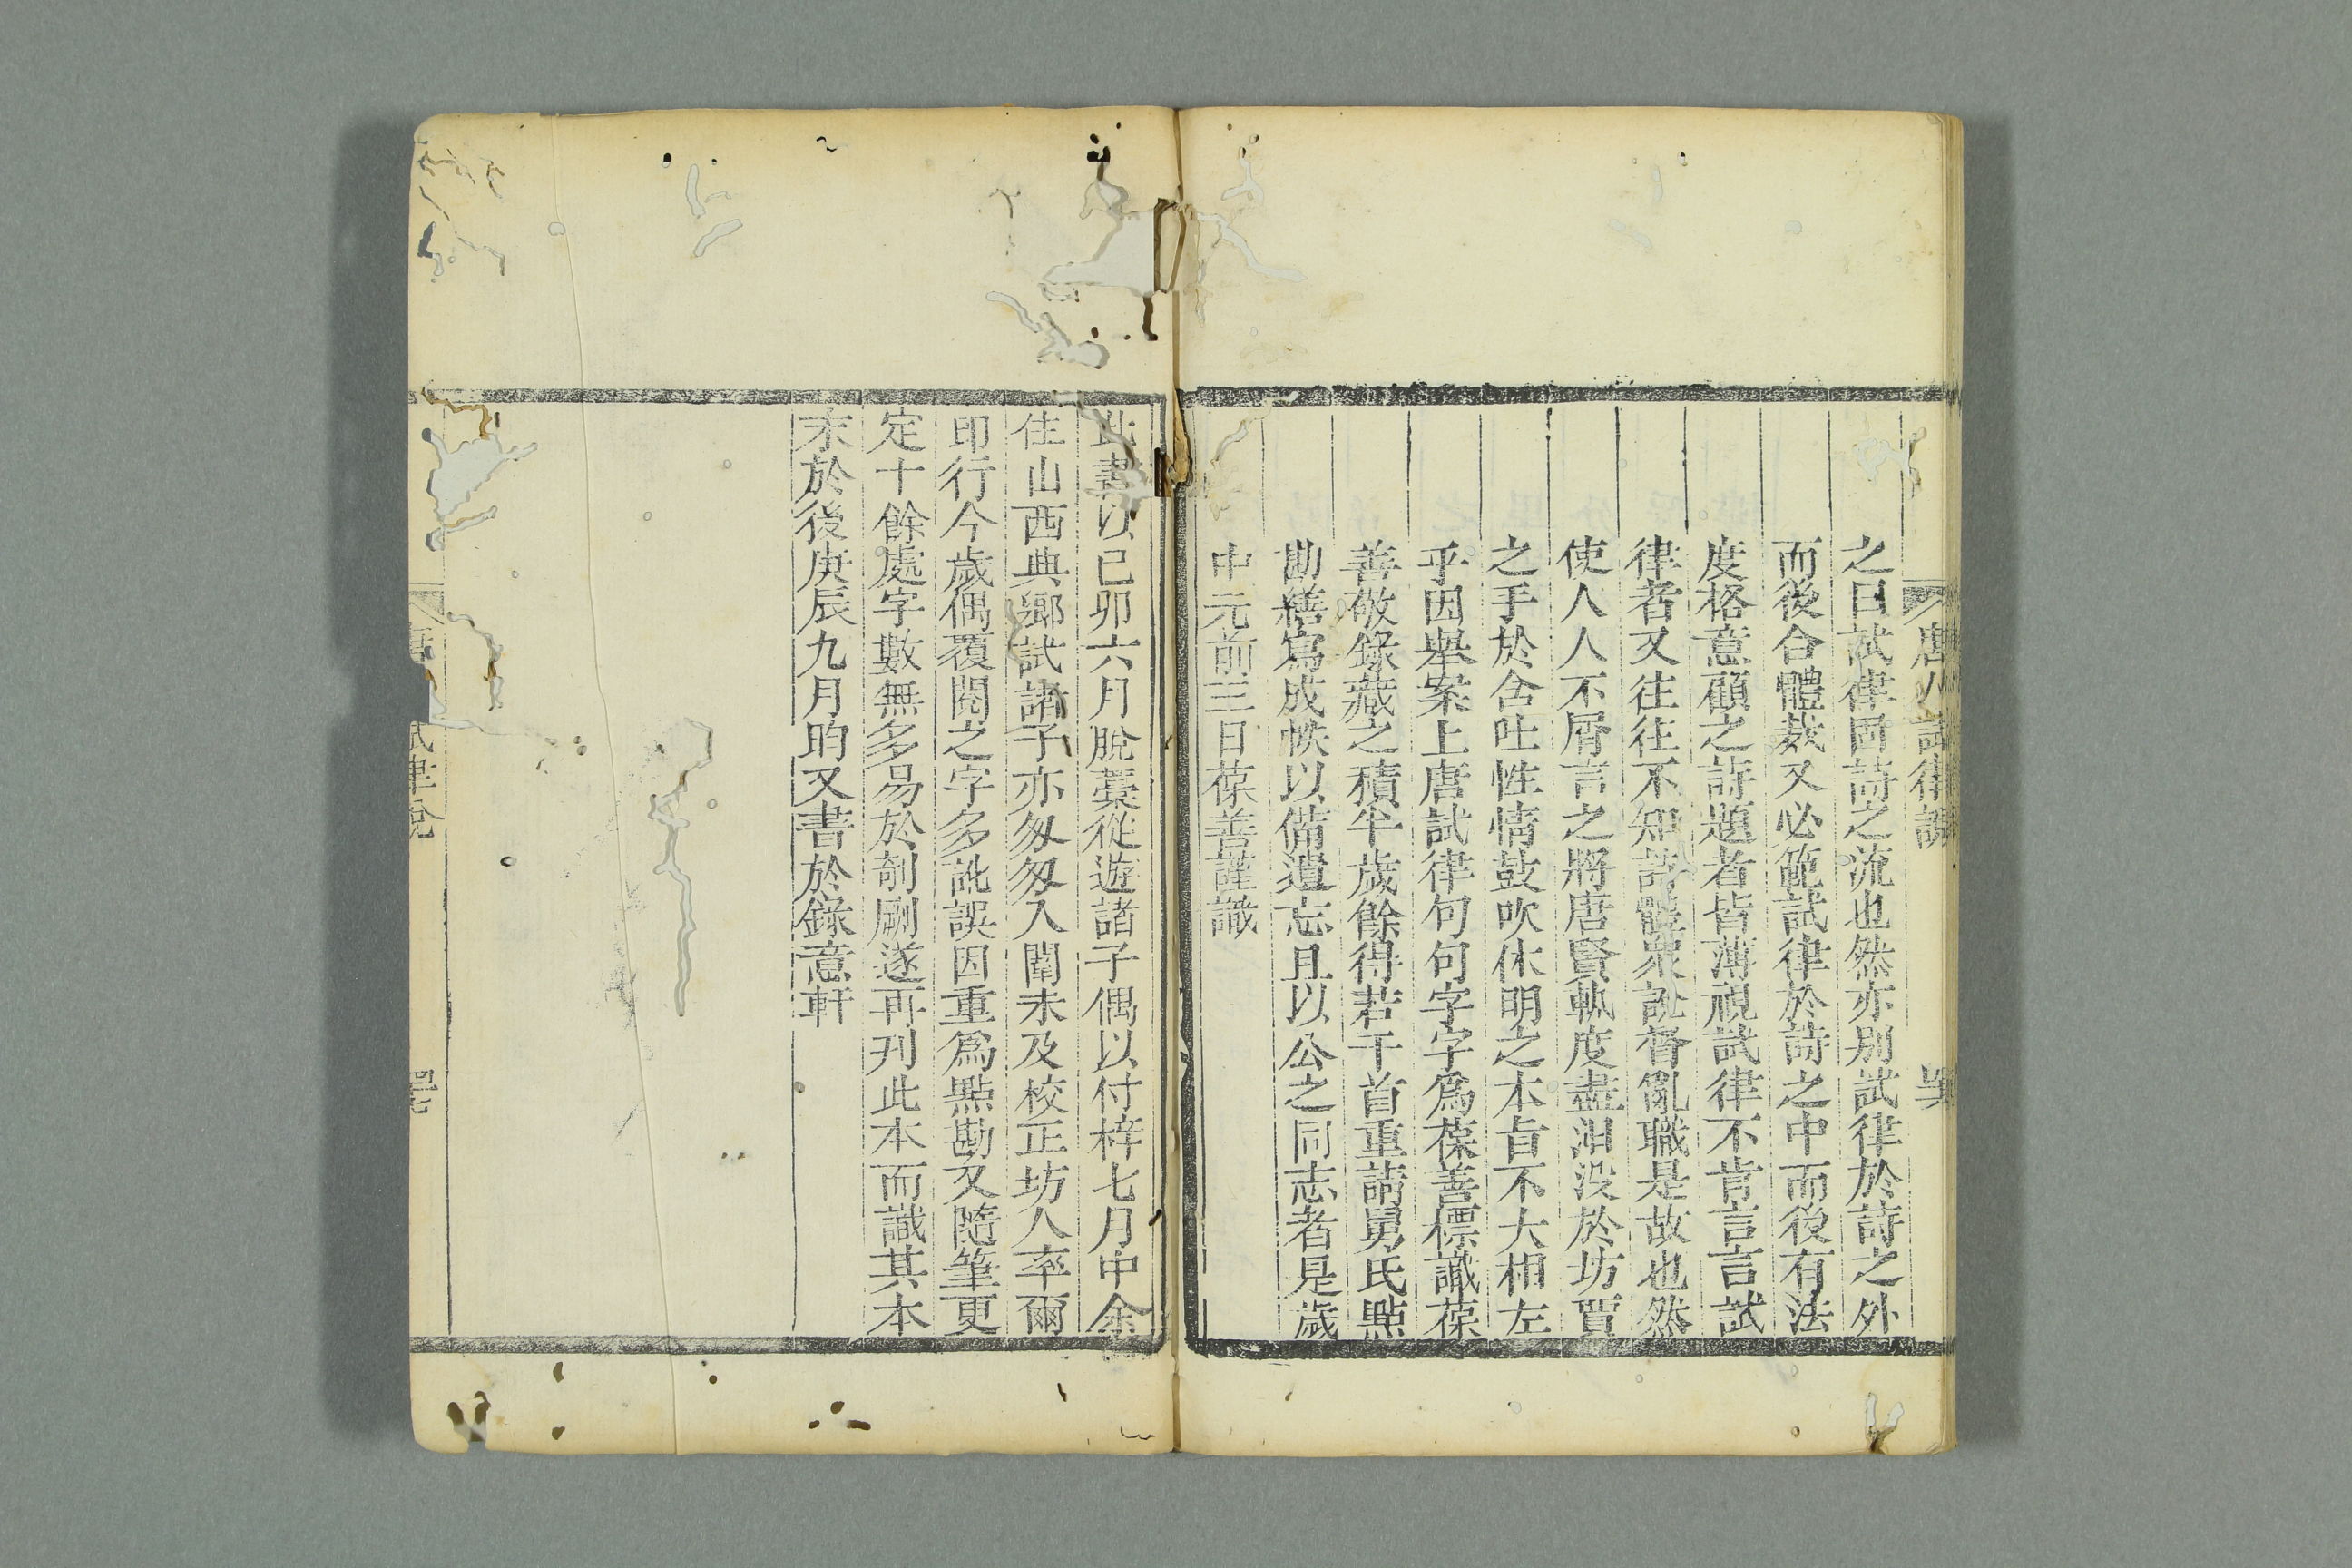 唐人試律說
之曰試律固詩之流也然亦別試律於詩之外
而後合體裁又必範試律於詩之中而後有法
度格意顧之詩題者皆薄視試律不肯言言試
律者又往往不知詩體衆訛瞀亂職是故也然
使人人不屑言之將唐賢軌度盡汨没於坊賈
之手於含吐性情鼓吹休明之本旨不大相左
乎因舉案上唐試律句句字字爲葆善標識葆
善敬錄藏之積半歲餘得若干首重請舅氏點
勘繕寫成帙以備遺忘且以公之同志者是歲
中元前三日葆善謹識
此書以己卯六月脫藁從遊諸子偶以付梓七月中余
往山西典鄉試諸子亦匆匆入闈未及校正坊人率爾
印行今歲偶覆閱之字多訛誤因重爲點勘又隨筆更
定十餘處字數無多易於剞劂遂再刊此本而識其本
末於後庚辰九月昀又書於錄意軒
試律說